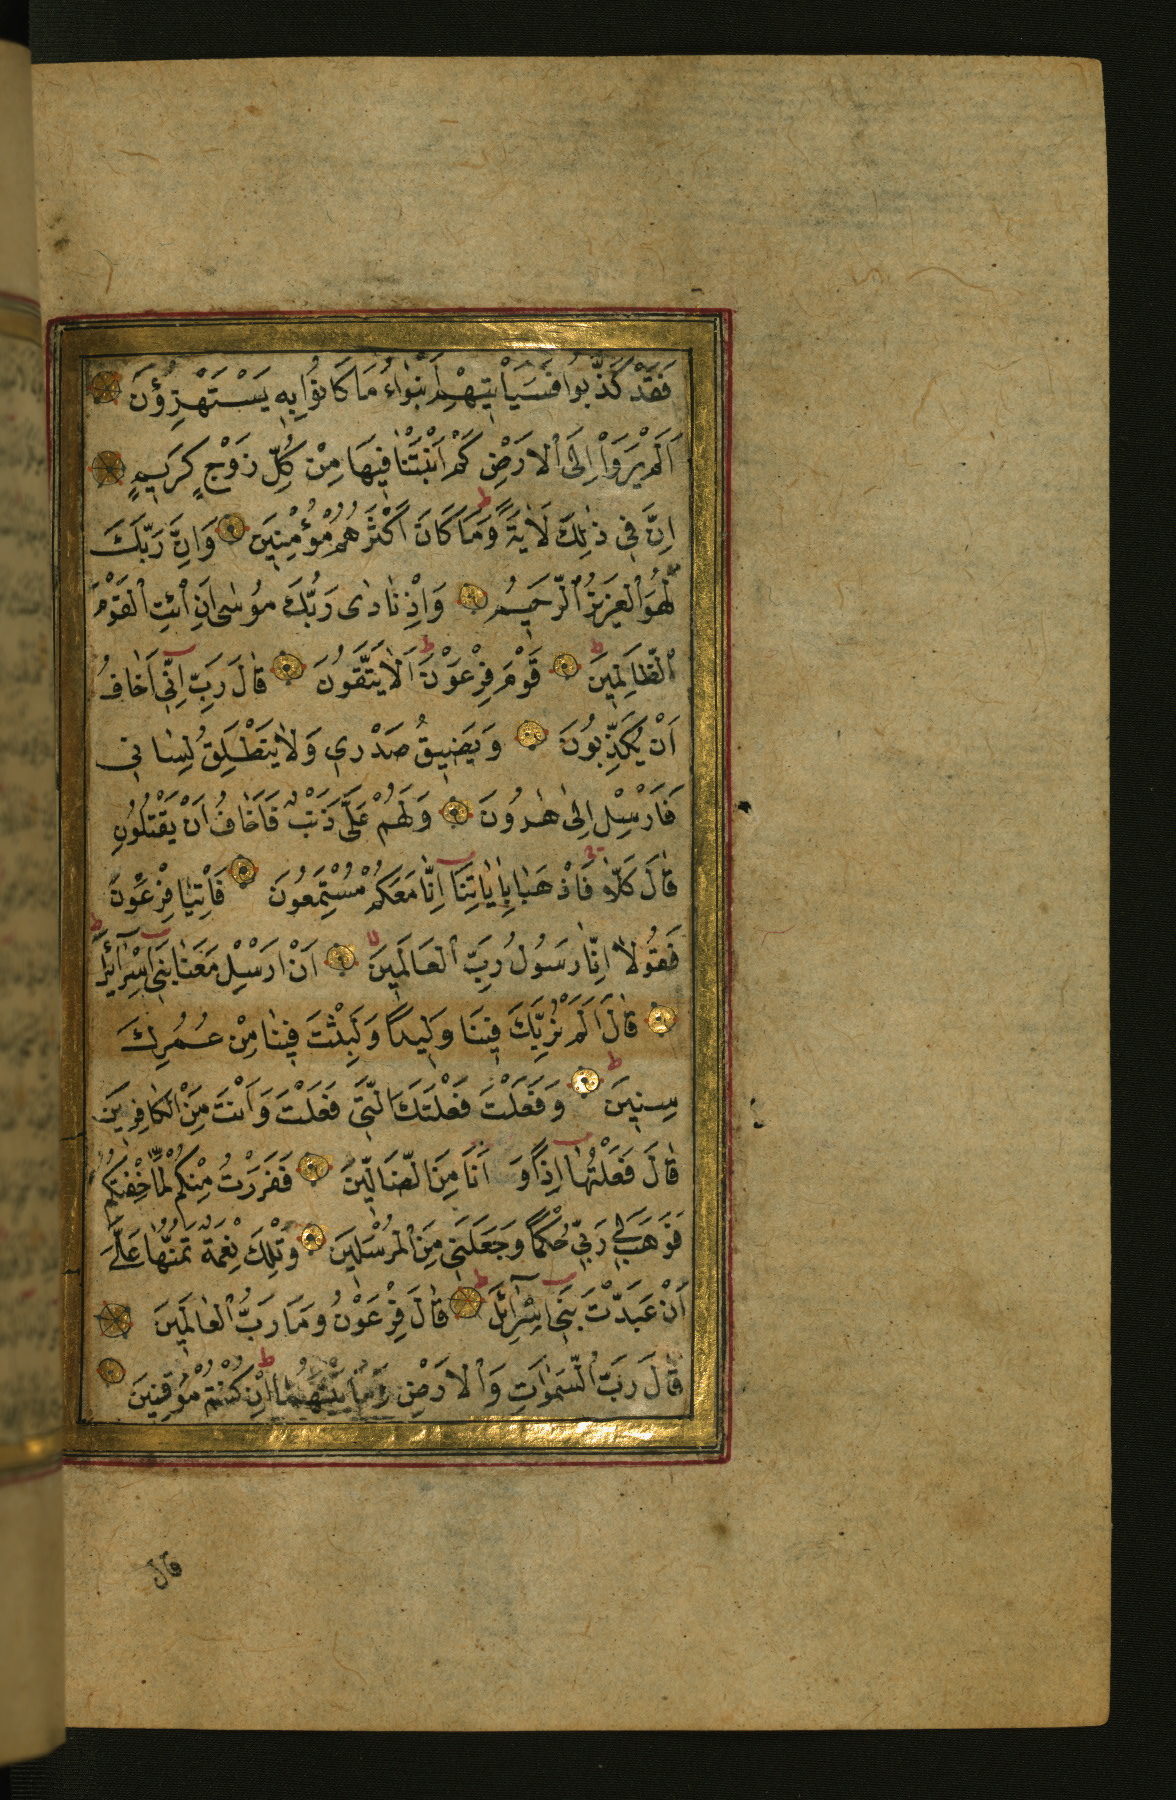 فَقَدْ كَذَّبُوا فَسَيَأْتِيهِمْ أَنْبٰؤُا مَا كَانُوا بِهِ يَسْتَهْزِؤُنَ
اَلَمْ يَرَوْا اِلَى الْاَرْضِ كَمْ اَنْبَتْنَا فِيهَا مِنْ كُلِّ زَوْجٍ كَرِيمٍ
اِنَّ فِي ذٰلِكَ لَاٰيَةً وَمَا كَانَ اَكْثَرُهُمْ مُؤْمِنِينَ وَاِنَّ رَبَّكَ
لَهُوَ الْعَزِيزُ الرَّحِيمُ وَاِذْ نَادٰى رَبُّكَ مُوسٰى اَنِ ائْتِ الْقَوْمَ
الظَّالِمِينَ قَوْمَ فِرْعَوْنَ اَلَا يَتَّقُونَ قَالَ رَبِّ اِنِّي اَخَافُ
اَنْ يُكَذِّبُونَ وَيَضِيقُ صَدْرِي وَلَا يَنْطَلِقُ لِسَانِي
فَاَرْسِلْ اِلٰى هٰرُونَ وَلَهُمْ عَلَيَّ ذَنْبٌ فَاَخَافُ اَنْ يَقْتُلُونِ
قَالَ كَلَّا فَاذْهَبَا بِاٰيَاتِنَا اِنَّا مَعَكُمْ مُسْتَمِعُونَ فَأْتِيَا فِرْعَوْنَ
فَقُولَا اِنَّا رَسُولُ رَبِّ الْعَالَمِينَ اَنْ اَرْسِلْ مَعَنَا بَنِي اِسْرَآئِلَ
قَالَ اَلَمْ نُرَبِّكَ فِينَا وَلِيدًا وَلَبِثْتَ فِينَا مِنْ عُمُرِكَ
سِنِينَ وَفَعَلْتَ فَعْلَتَكَ الَّتِي فَعَلْتَ وَاَنْتَ مِنَ الْكَافِرِينَ
قَالَ فَعَلْتُهَا اِذًا وَ اَنَا مِنَ الضَّالِّينَ فَفَرَرْتُ مِنْكُمْ لَمَّا خِفْتُكُمْ
فَوَهَبَ لِي رَبِّي حُكْمًا وَجَعَلَنِي مِنَ الْمُرْسَلِينَ وَتِلْكَ نِعْمَةٌ تَمُنُّهَا عَلَيَّ
اَنْ عَبَّدْتَ بَنِي اِسْرَآئِلَ قَالَ فِرْعَوْنُ وَمَا رَبُّ الْعَالَمِينَ
قَالَ رَبُّ السَّمٰوَاتِ وَالْاَرْضِ وَمَا بَيْنَهُمَا اِنْ كُنْتُمْ مُوقِنِينَ
قال